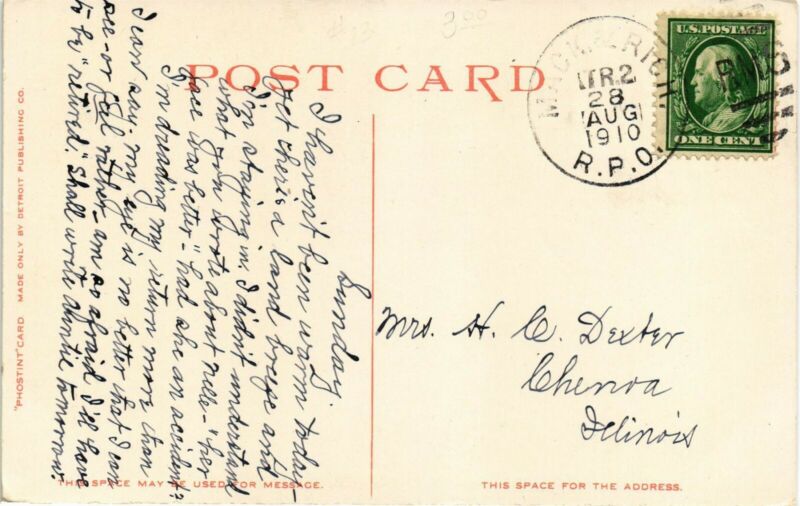 POST CARD
3.00
MACK. & RICH.
TR.2
28
AUG
1910
R.P.O.
U.S. POSTAGE
ONE CENT
RMS
Sunday.
I haven't been warm today-
yet there's a land breeze and
I'm staying in. I didn't understand
what you wrote about Nell - "her
face was better" - had she an accident?
I'm dreading my return more than
I can say. my eye is no better that I can
see - or feel rather - am so afraid I'll have
to be "retired." Shall write Auntie tomorrow.
Mrs. H. C. Dexter
Chenoa
Illinois
THIS SPACE MAY BE USED FOR MESSAGE.
THIS SPACE FOR THE ADDRESS.
"PHOSTINT" CARD MADE ONLY BY DETROIT PUBLISHING CO.